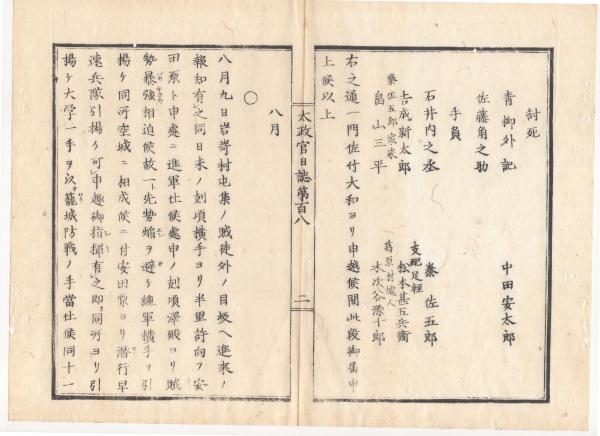 討死
青柳外記
中田安太郎
佐藤角之助
手負
支配足軽
石井内之丞
秦佐五郎
吉成新太郎
松本甚五兵衛
秦佐五郎家来
畠山三平
木次谷源十郎
右之通一門佐竹大和ヨリ申越候間此段御届申
上候以上
八月
太政官日誌第百八
二
○
八月九日岩嵜村屯集ノ賊徒外ノ目坂ヘ逃来ノ
報知有之同日未ノ刻頃横手ヨリ半里許向フ安
田原ト申處ニ進軍仕候處申ノ刻頃澤殿ヨリ賊
勢暴強相迫候故一ト先勢焔ヲ避ケ總軍横手ヲ引
揚ケ同所空城ニ相成候ニ付安田原ヨリ潜行早
速兵隊引揚ケ可申趣御指揮有之即同所ヨリ引
揚ケ大学一手ヲ以テ籠城防戦ノ手當仕候同十一